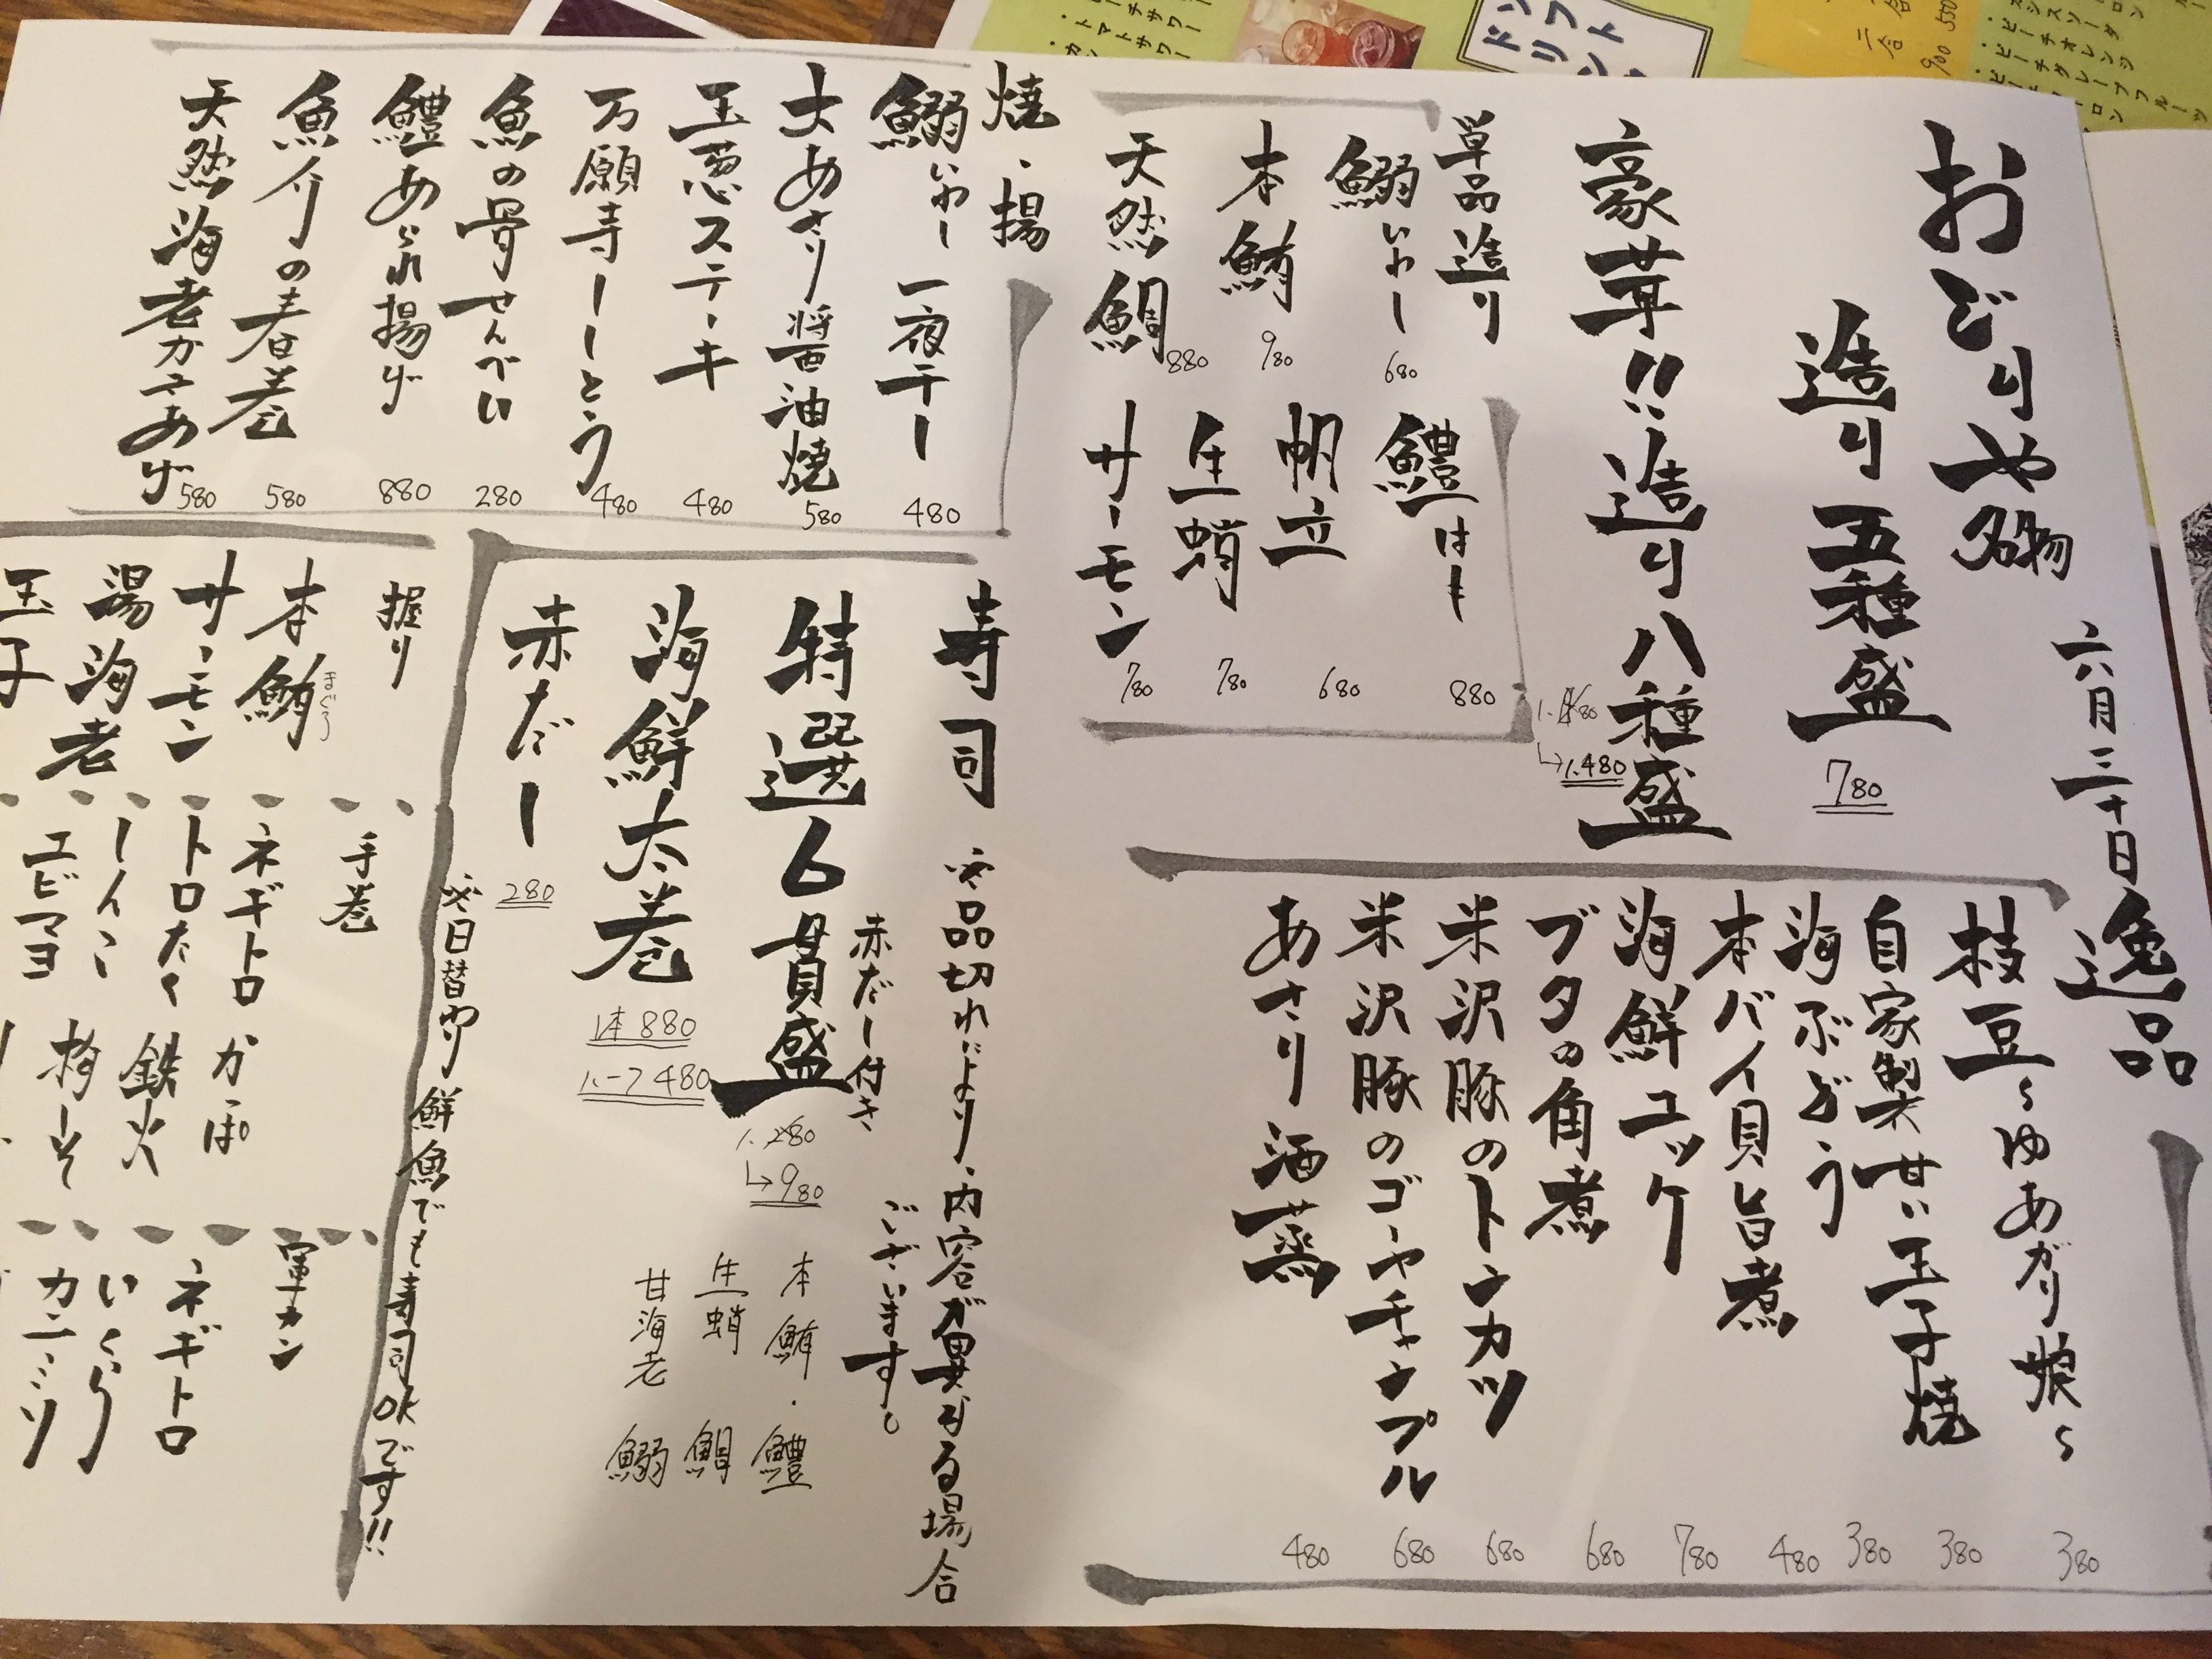 おどりや名物
六月三十日
造り五種盛
780
豪華!!造り八種盛
1.480
単品造り
鰯いわし
680
本鮪
980
天然鯛
880
鱧はも
880
帆立
680
生蛸
780
サーモン
780
逸品
枝豆〜ゆあがり娘〜
380
自家製甘い玉子焼
380
海ぶどう
380
本バイ貝旨煮
480
海鮮ユッケ
780
ブタの角煮
680
米沢豚のトンカツ
680
米沢豚のゴーヤチャンプル
680
あさり酒蒸
480
焼・揚
鰯いわし一夜干し
480
大あさり醤油焼
580
玉葱ステーキ
480
万願寺ししとう
480
魚の骨せんべい
280
鱧あられ揚げ
880
魚介の春巻
580
天然海老かきあげ
580
寿司
※品切れにより、内容が異なる場合
ございます。
特選6貫盛
赤だし付き
1.280
→980
本鮪・鱧
生蛸 鯛
甘海老 鰯
海鮮太巻
1本 880
ハーフ 480
赤だし
280
※日替わり鮮魚でも寿司OKです!!
握り
本鮪まぐろ
サーモン
湯海老
玉子
手巻
ネギトロ
トロたく
しんこ
エビマヨ
かっぱ
鉄火
梅しそ
軍カン
ネギトロ
いくら
カニミソ
ソフト
ドリンク
・トマトサワー
二合 900
・ピーチオレンジ
・ピーチグレープフルーツ